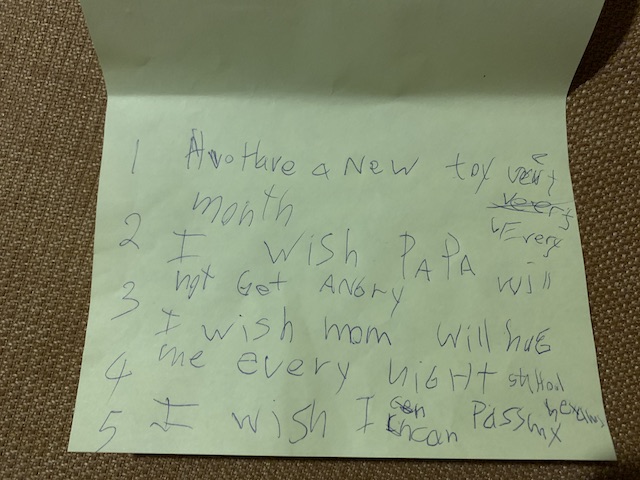 1 Have a New toy
Every
month
2 I wish PAPA will
not Get ANGry
3
I wish mom will hug
me every NiGHt
4
5 I wish I can Pass my exams